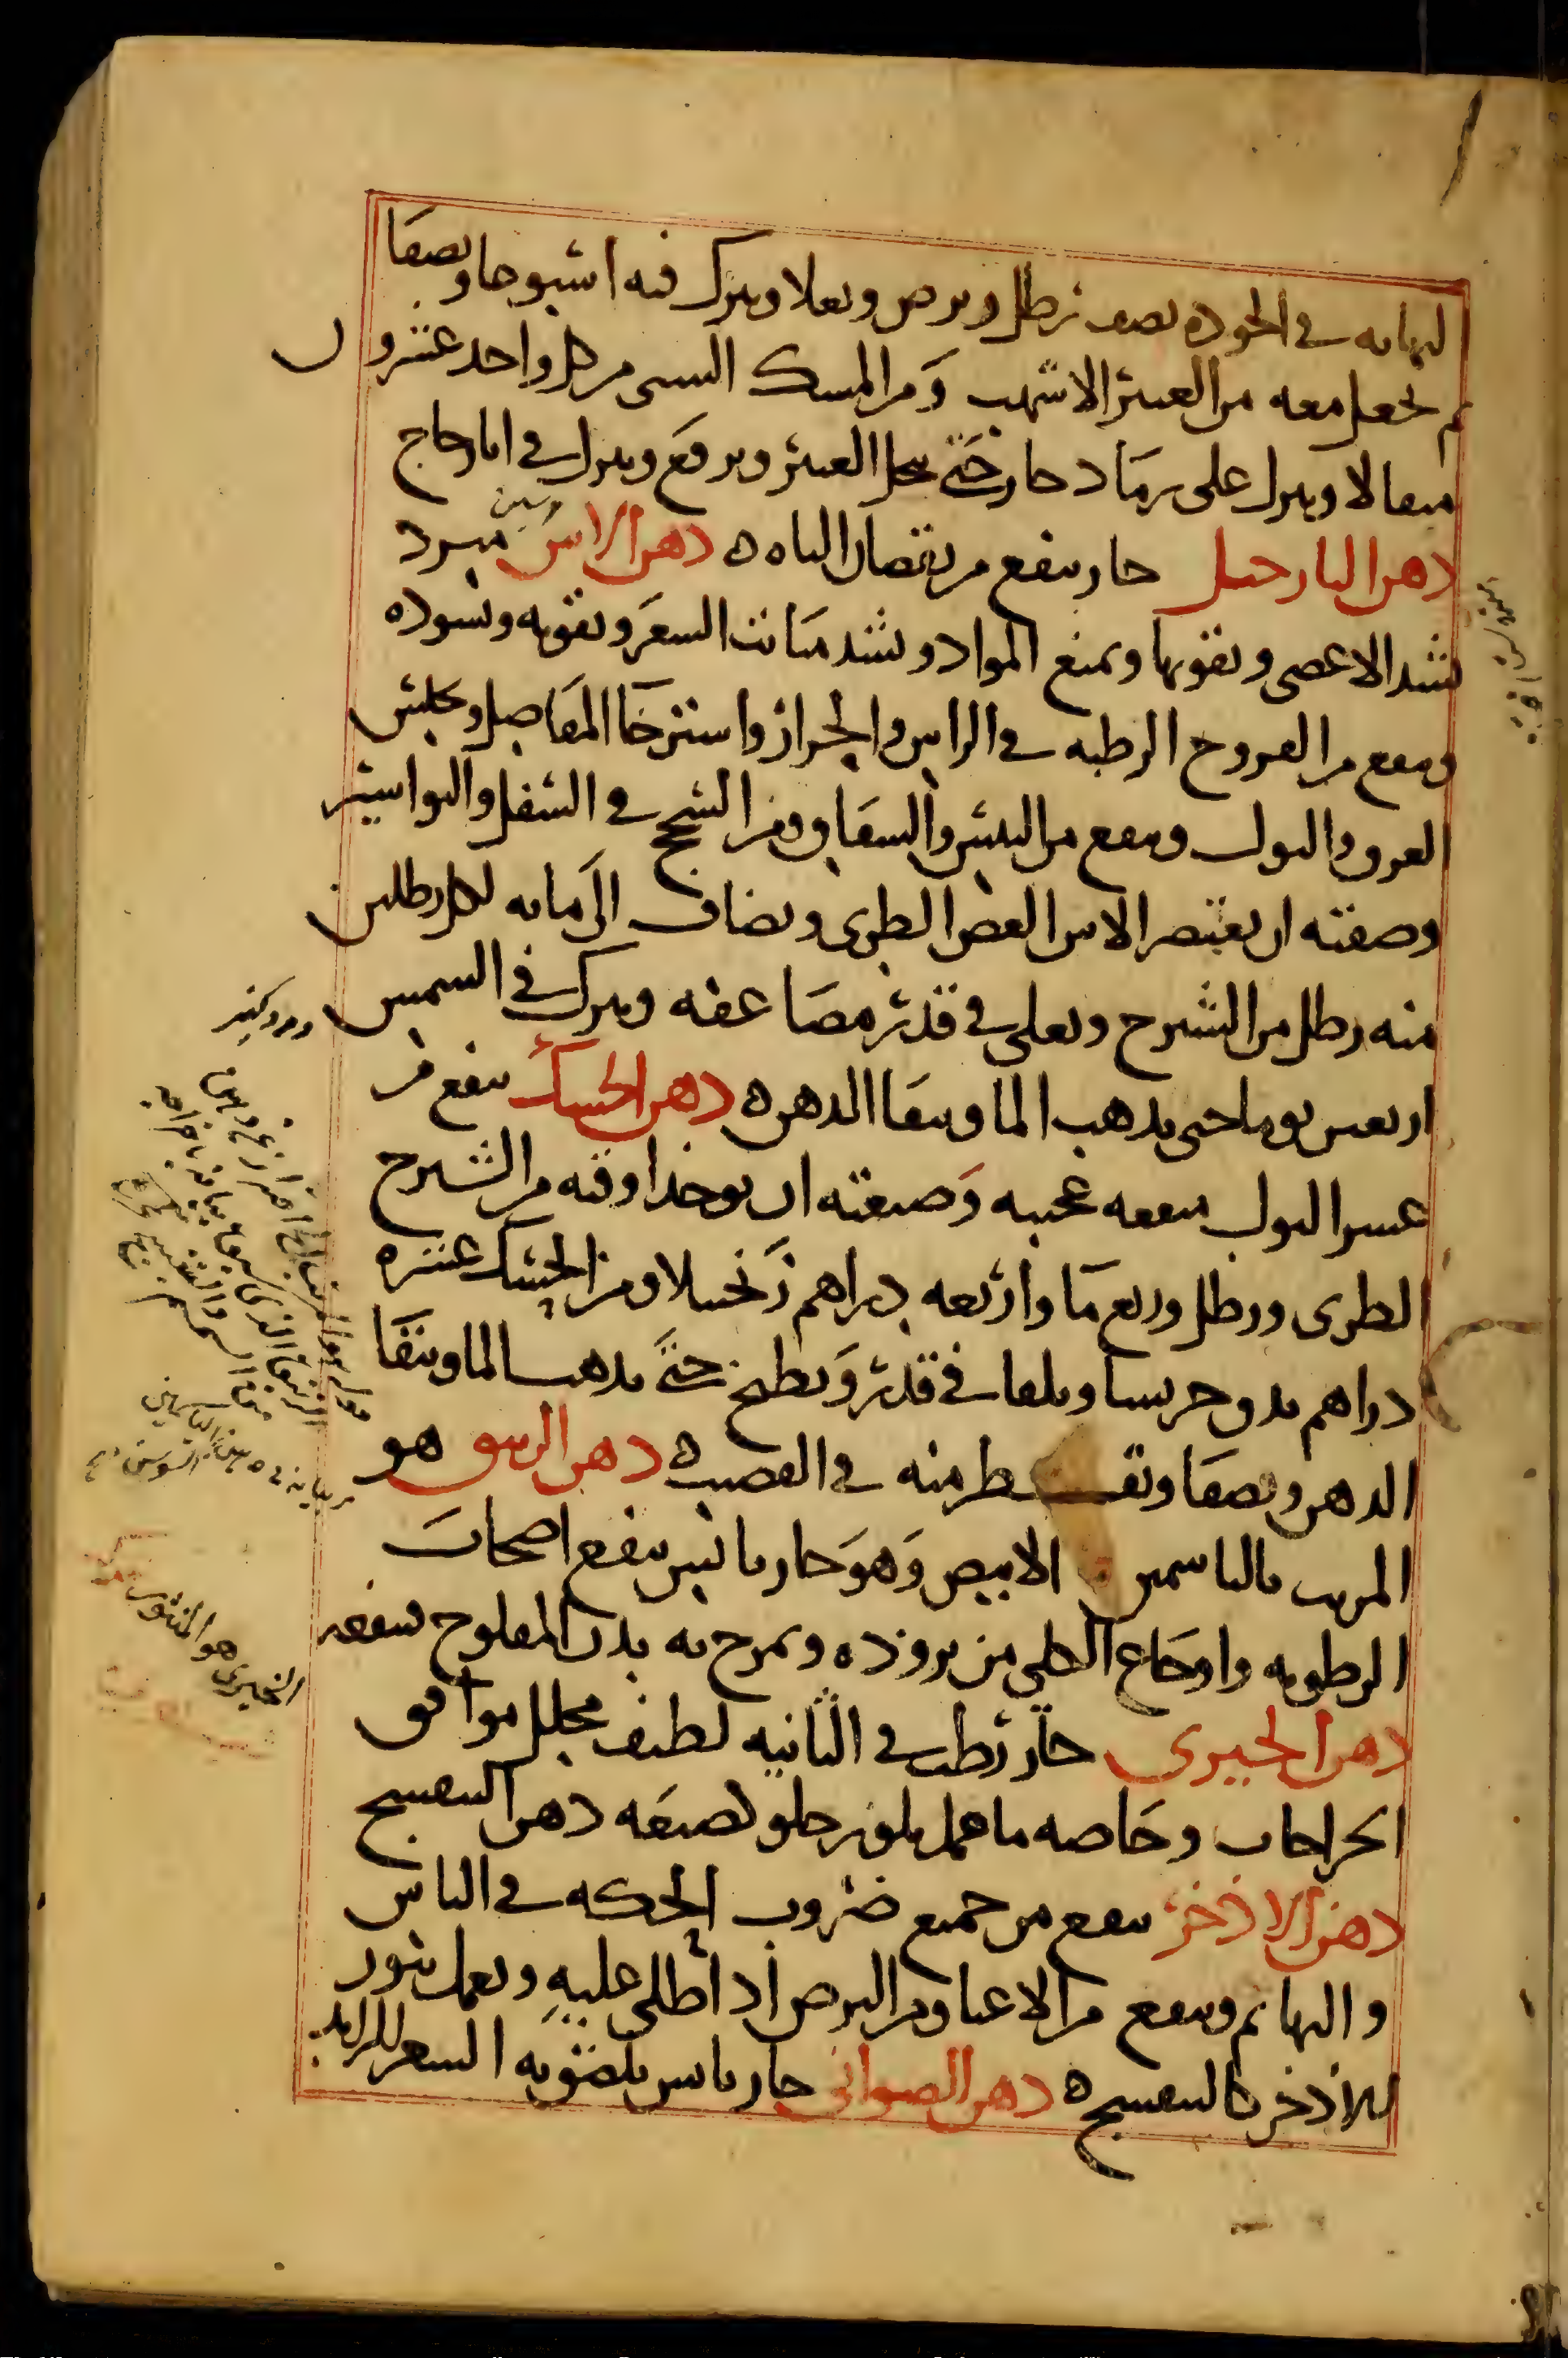 النهايه في الجوده نصف رطل ويرض ويغلا ويترك فيه اسبوعا ويصفا
ثم يجعل معه من العنبر الاشهب ومن المسك التبتى من كل واحد عشرون
مثقالا وينزل على رماد حار حتى ينحل العنبر ويرفع وينزل في انا زجاج
دهن النارجيل حار ينفع من نقصان الباه ه دهن الاس مبرد
يشد الاعضى ويقويها ويمنع المواد ويشد منابت الشعر ويقويه ويسوده
وينفع من القروح الرطبه في الراس والحزاز واسترخا المفاصل ويحبس
العرق والبول وينفع من البثر والشقاق ومن السحج في السفل والبواسير
وصفته ان يعتصر الاس الغض الطرى ويضاف الى مايه لكل رطلين
منه رطل من الشيرج ويغلى في قدر مضاعفه ويترك في الشمس
اربعين يوما حتى يذهب الما ويبقا الدهن ه دهن الحسك ينفع من
عسر البول منفعه عجيبه وصفته ان يوخذ اوقيه من الشيرج
الطرى ورطل وربع ما واربعه دراهم زنجبيلا ومن الحسك عشره
دراهم يدق جريشا ويلقا في قدر ويطبخ حتى يذهب الما ويبقا
الدهن ويصفا ويقطر منه في القضيب ه دهن الزنبق هو
المربب بالياسمين الابيض وهو حار يابس ينفع اصحاب
الرطوبه واوجاع الكلى من بروده ويمرخ به بدن المفلوج فينفعه
دهن الخيرى حار رطب في الثانيه لطيف محلل موافق
الجراحات وخاصه ما عمل بلوز حلو كصنعه دهن البنفسج
دهن الاذخر ينفع من جميع ضروب الحكه في الناس
والبهايم وينفع من الاعيا ومن البرص اذا طلى عليه ويعمل بنور
الاذخر كالبنفسج ه دهن الصوانى حار يابس يلصق به الشعر الزايد
الخيرى هو المنثور